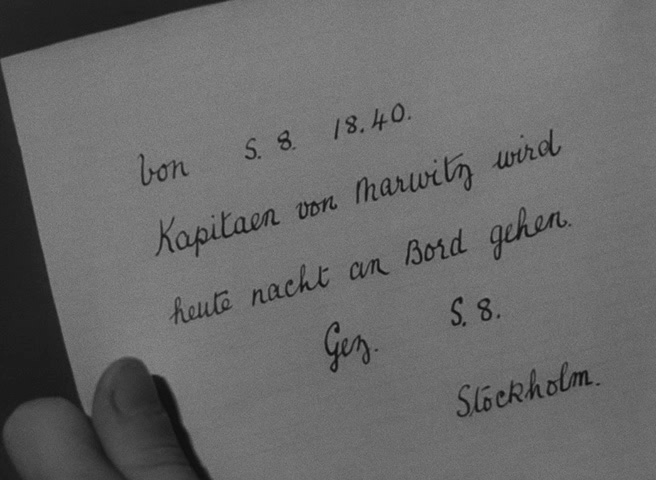 von S. 8. 18.40.
Kapitaen von Marwitz wird
heute nacht an Bord gehen.
Gez. S. 8.
Stockholm.